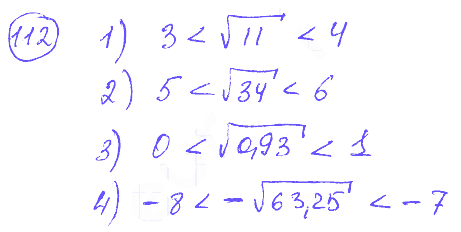 112 1) 3 < √11 < 4
2) 5 < √34 < 6
3) 0 < √0,93 < 1
4) - 8 < - √63,25 < - 7